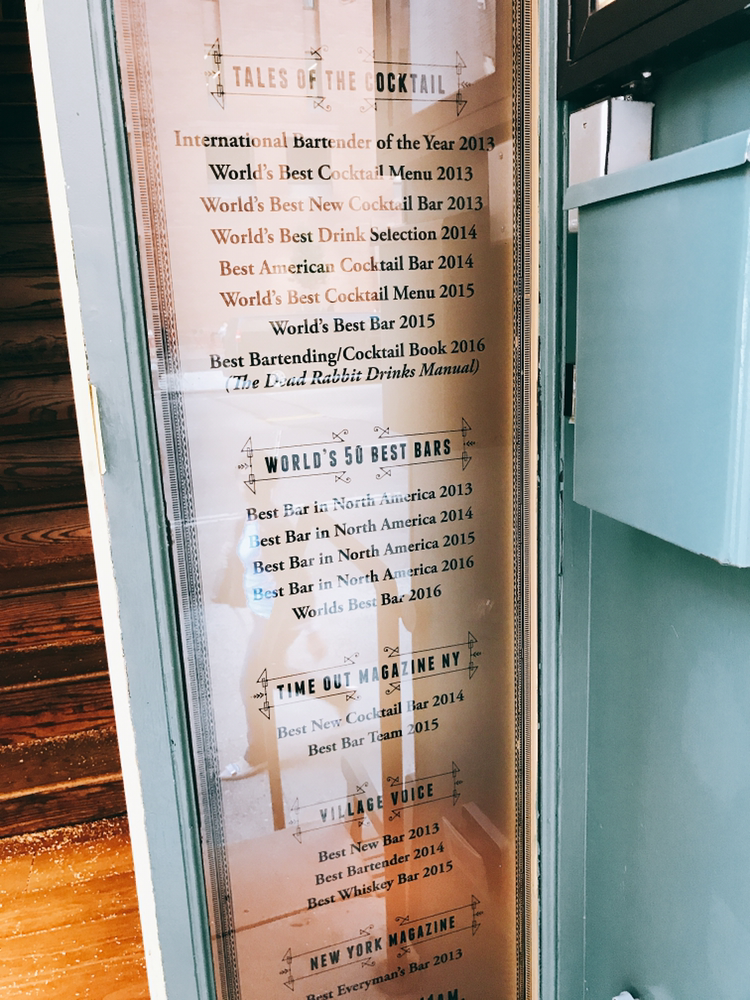 TALES OF THE COCKTAIL
International Bartender of the Year 2013
World's Best Cocktail Menu 2013
World's Best New Cocktail Bar 2013
World's Best Drink Selection 2014
Best American Cocktail Bar 2014
World's Best Cocktail Menu 2015
World's Best Bar 2015
Best Bartending/Cocktail Book 2016
(The Dead Rabbit Drinks Manual)
WORLD'S 50 BEST BARS
Best Bar in North America 2013
Best Bar in North America 2014
Best Bar in North America 2015
Best Bar in North America 2016
Worlds Best Bar 2016
TIME OUT MAGAZINE NY
Best New Cocktail Bar 2014
Best Bar Team 2015
VILLAGE VOICE
Best New Bar 2013
Best Bartender 2014
Best Whiskey Bar 2015
NEW YORK MAGAZINE
Best Everyman's Bar 2013